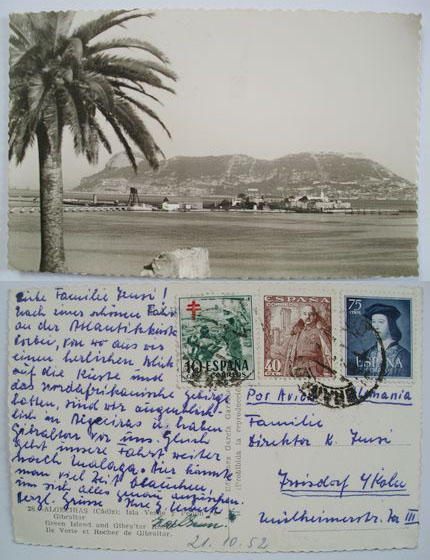 Liebe Familie Jensi!
Nach einer schönen Fahrt
an der Atlantikküste
vorbei, von wo aus wir
einen herrlichen Blick
auf die Küste und
das nordafrikanische Gebirge
hatten, sind wir augenblick-
lich in Algeciras u. haben
Gibraltar vor uns. Gleich
geht unsere Fahrt weiter
nach Malaga. Hier könnte
man viel Zeit brauchen,
um sich alles genau anzusehen.
Herzl. Grüsse
28.-ALGECIRAS (Cádiz): Isla Verde
Gibraltar
Green Island and Gibraltar
Ile Verte et Rocher de Gibraltar.
21.10.52
García Garrabella
(Prohibida la reproducción)
10 ESPAÑA
CORREOS
ESPAÑA
CORREOS
40
CTS
75
CTMS
ESPAÑA
Por Avion
Alemania
Familie
Direktor K. Jensi
Troisdorf / Köln
Mülheimerstr. III